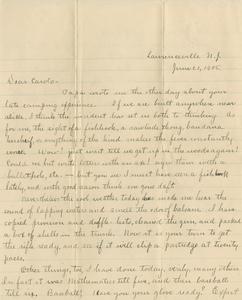 Lawrenceville N.J.
June 21, 1905
Dear Carolo -
Papa wrote me the other day about your
late camping experience. If we are built anywhere near
alike, I think the incident has set us both to thinking. As
for me, the sight of a fishhook, a cowhide thong, bandana
kerchief, or anything of the kind makes the fever constantly
worse. Won't just wait till we get up in the woods again!
Could we but write letters with an axe! sign them with a
bullet-hole, etc. — but you see I must have seen a fishhook
lately, and with good reason think I'm gone daft.
Nevertheless the wet weather today has made me hear the
sound of lapping water and smell the odor balsam. I have
coated pennies and duffle lists, cleaned the gun, and packed
a box of shells in the trunk. Now it is your turn to get
the rifle ready, and see if it will chip a partridge at twenty
paces.
Other things, too, I have done today, verily, many others
In fact it was Mathematics till five, and then baseball
till six. Baseball! Have you your glove ready? Expect